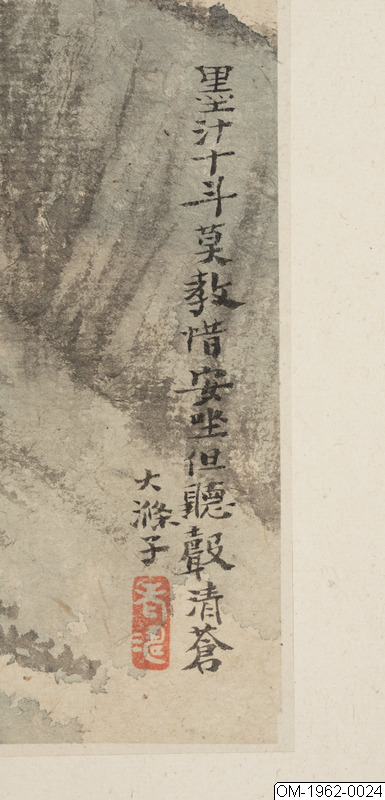 墨汁十斗莫教惜安坐但聽聲清蒼
大滌子
OM-1962-0024